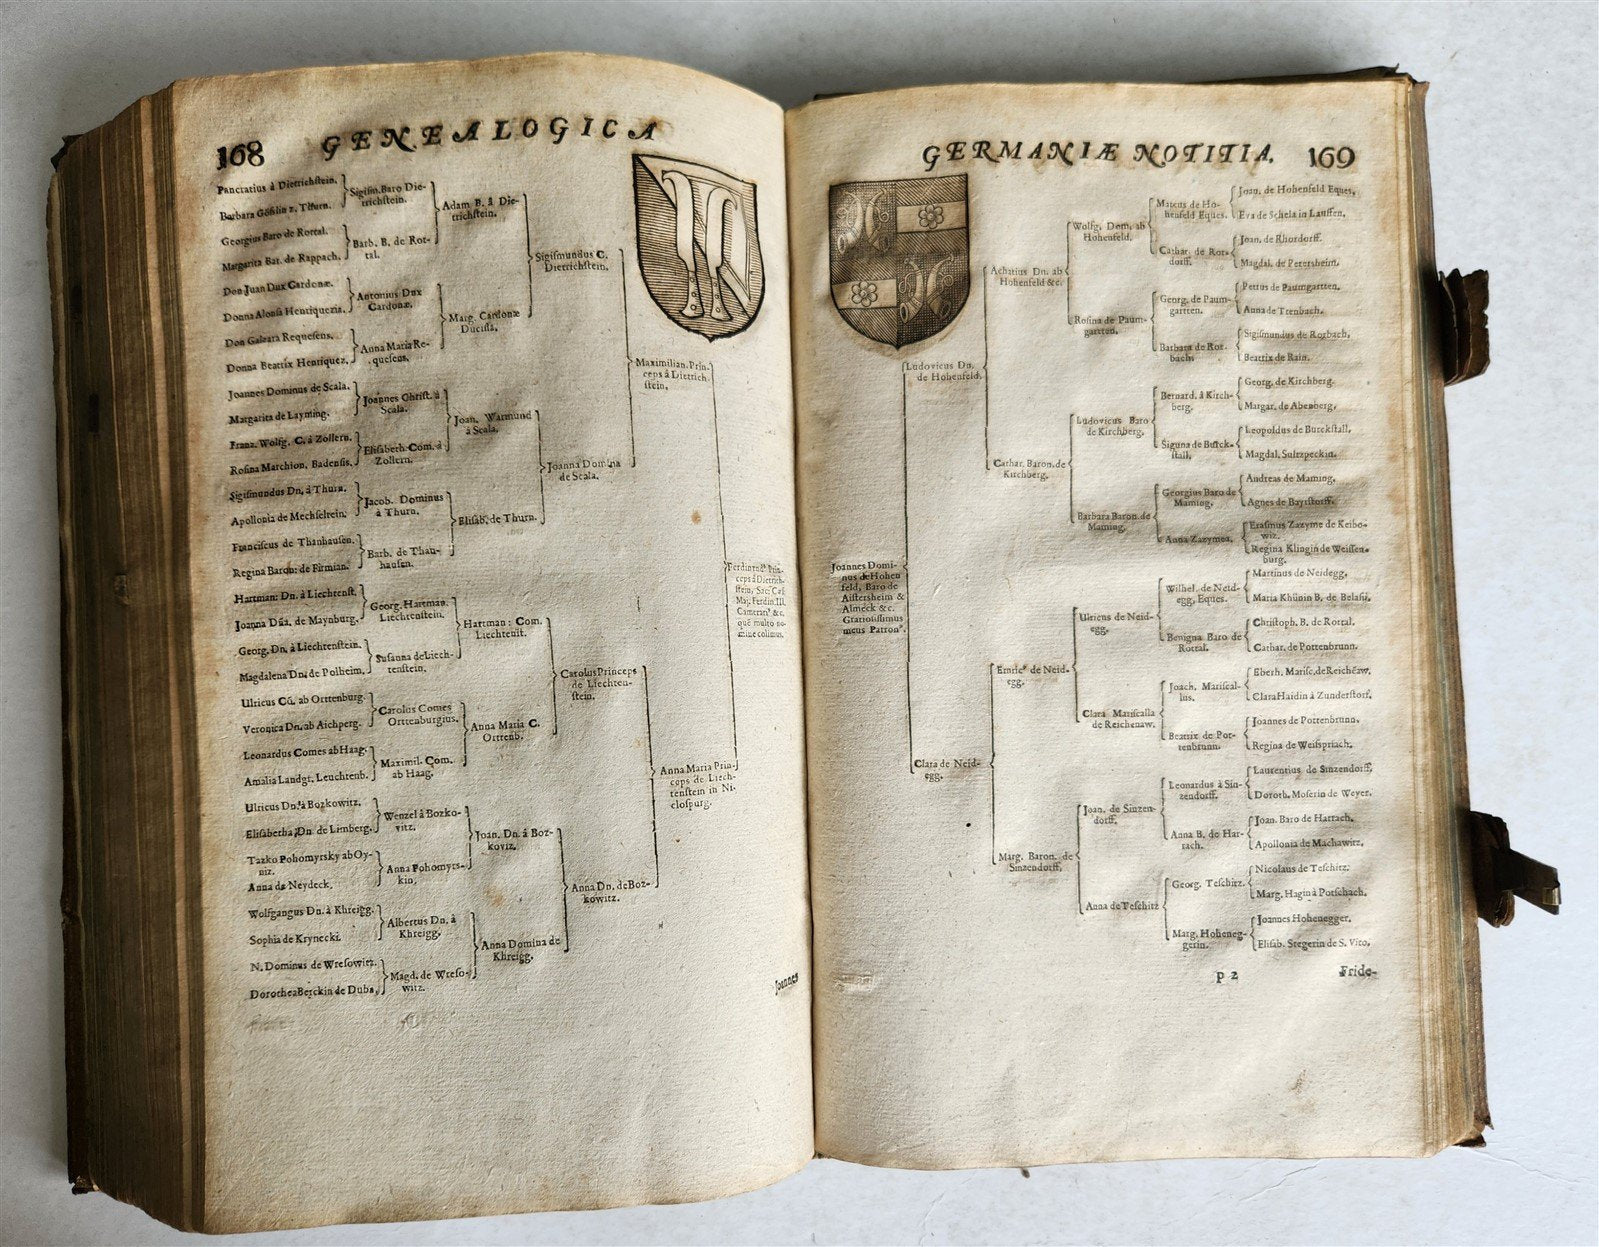 168 GENEALOGICA
Pancratius à Dietrichstein.
Barbara Gößlin z. Thurn.
Georgius Baro de Rottal.
Margarita Bar. de Rappach.
Don Juan Dux Cardonæ.
Donna Alonsa Henriquezia.
Don Galzara Requesens.
Donna Beatrix Henriquez.
Joannes Dominus de Scala.
Margarita de Layming.
Franz. Wolfg. C. à Zollern.
Rosina Marchion. Badensis.
Sigismundus Dn. à Thurn.
Apollonia de Mechselrein.
Franciscus de Thanhausen.
Regina Baron: de Firmian.
Hartman: Dn. à Liechtenst.
Joanna Dña. de Maynburg.
Georg. Dn. à Liechtenstein.
Magdalena Dn. de Polheim.
Ulricus Cũ. ab Orttenburg.
Veronica Dn. ab Aichperg.
Leonardus Comes ab Haag.
Amalia Landgr. Leuchtenb.
Ulricus Dn. à Bozkowitz.
Elisabetha Dn. de Limberg.
Tazko Pohomyrsky ab Oy-
niz.
Anna de Neydeck.
Wolfgangus Dn. à Khreigg.
Sophia de Krynecki.
N. Dominus de Wresowitz.
Dorothea Berckin de Duba.
Sigism. Baro Die-
trichstein.
Barb. B. de Rot-
tal.
Antonius Dux
Cardonæ.
Anna Maria Re-
quesens.
Joannes Christ. à
Scala.
Elisabeth Com. à
Zollern.
Jacob. Dominus
à Thurn.
Barb. de Than-
hausen.
Georg. Hartman.
Liechtenstein.
Susanna de Liech-
tenstein.
Carolus Comes
Orttenburgius.
Maximil. Com.
ab Haag.
Wenzel à Bozko-
vitz.
Anna Pohomyrs-
kin.
Albertus Dn. à
Khreigg.
Magd. de Wreso-
witz.
Adam B. à Die-
trichstein.
Marg. Cardonæ
Ducissa.
Joan. Warmund
à Scala.
Elisab. de Thurn.
Hartman: Com.
Liechtenst.
Anna Maria C.
Orttenb.
Joan. Dn. à Boz-
koviz.
Anna Domina de
Khreigg.
Sigismundus C.
Dietrichstein.
Joanna Domina
de Scala.
Carolus Princeps
de Liechten-
stein.
Anna Dn. de Boz-
kowitz.
Maximilian. Prin-
ceps à Dietrich-
stein.
Anna Maria Prin-
ceps de Liech-
tenstein in Ni-
clospurg.
Joannes
GERMANIÆ NOTITIA. 169
Joannes Domi-
nus de Hohen
feld, Baro de
Aistersheim &
Almeck &c.
Gratiosissimus
meus Patron⁹.
Ludovicus Dn.
de Hohenfeld.
Clara de Neid-
egg.
Achatius Dn. ab
Hohenfeld &c.
Cathar. Baron. de
Kirchberg.
Ernric⁹ de Neid-
egg.
Marg. Baron. de
Sinzendorff.
Wolfg. Dom. ab
Hohenfeld.
Rosina de Paum-
gartten.
Ludovicus Baro
de Kirchberg.
Barbara Baron. de
Maming.
Ulricus de Neid-
egg.
Clara Mariscalla
de Reichenaw.
Joan. de Sinzen-
dorff.
Anna de Teschitz
Marcus de Ho-
henfeld Eques.
Cathar. de Ror-
dorff.
Georg. de Paum-
gartten.
Barbara de Roz-
bach.
Bernard. à Kirch-
berg.
Siguna de Burck-
stall.
Georgius Baro de
Maming.
Anna Zazymea.
Wilhel. de Neid-
egg, Eques.
Benigna Baro de
Rottal.
Joach. Mariscal-
lus.
Beatrix de Pot-
tenbrunn.
Leonardus à Sin-
zendorff.
Anna B. de Har-
rach.
Georg. Teschitz.
Marg. Hoheneg-
gerin.
Joan. de Hohenfeld Eques.
Eva de Schela in Lauffen.
Joan. de Rhordorff.
Magdal. de Petersheim.
Petrus de Paumgartten.
Anna de Trenbach.
Sigismundus de Rozbach.
Beatrix de Rain.
Georg. de Kirchberg.
Margar. de Abenberg.
Leopoldus de Burckstall.
Magdal. Sultzpeckin.
Andreas de Maming.
Agnes de Bayrstorff.
Erasmus Zazyme de Keibo-
wiz.
Regina Klingin de Weissen-
burg.
Martinus de Neidegg.
Maria Khünin B. de Belasii.
Christoph. B. de Rottal.
Cathar. de Pottenbrunn.
Eberh. Marisc. de Reichēaw.
Clara Haidin à Zunderstorf.
Joannes de Pottenbrunn.
Regina de Weispriach.
Laurentius de Sinzendorff.
Doroth. Moserin de Weyer.
Joan. Baro de Harrach.
Apollonia de Machawitz.
Nicolaus de Teschitz.
Marg. Hagin à Potschach.
Joannes Hohenegger.
Elisab. Stegerin de S. Vito.
p 2 Fride-